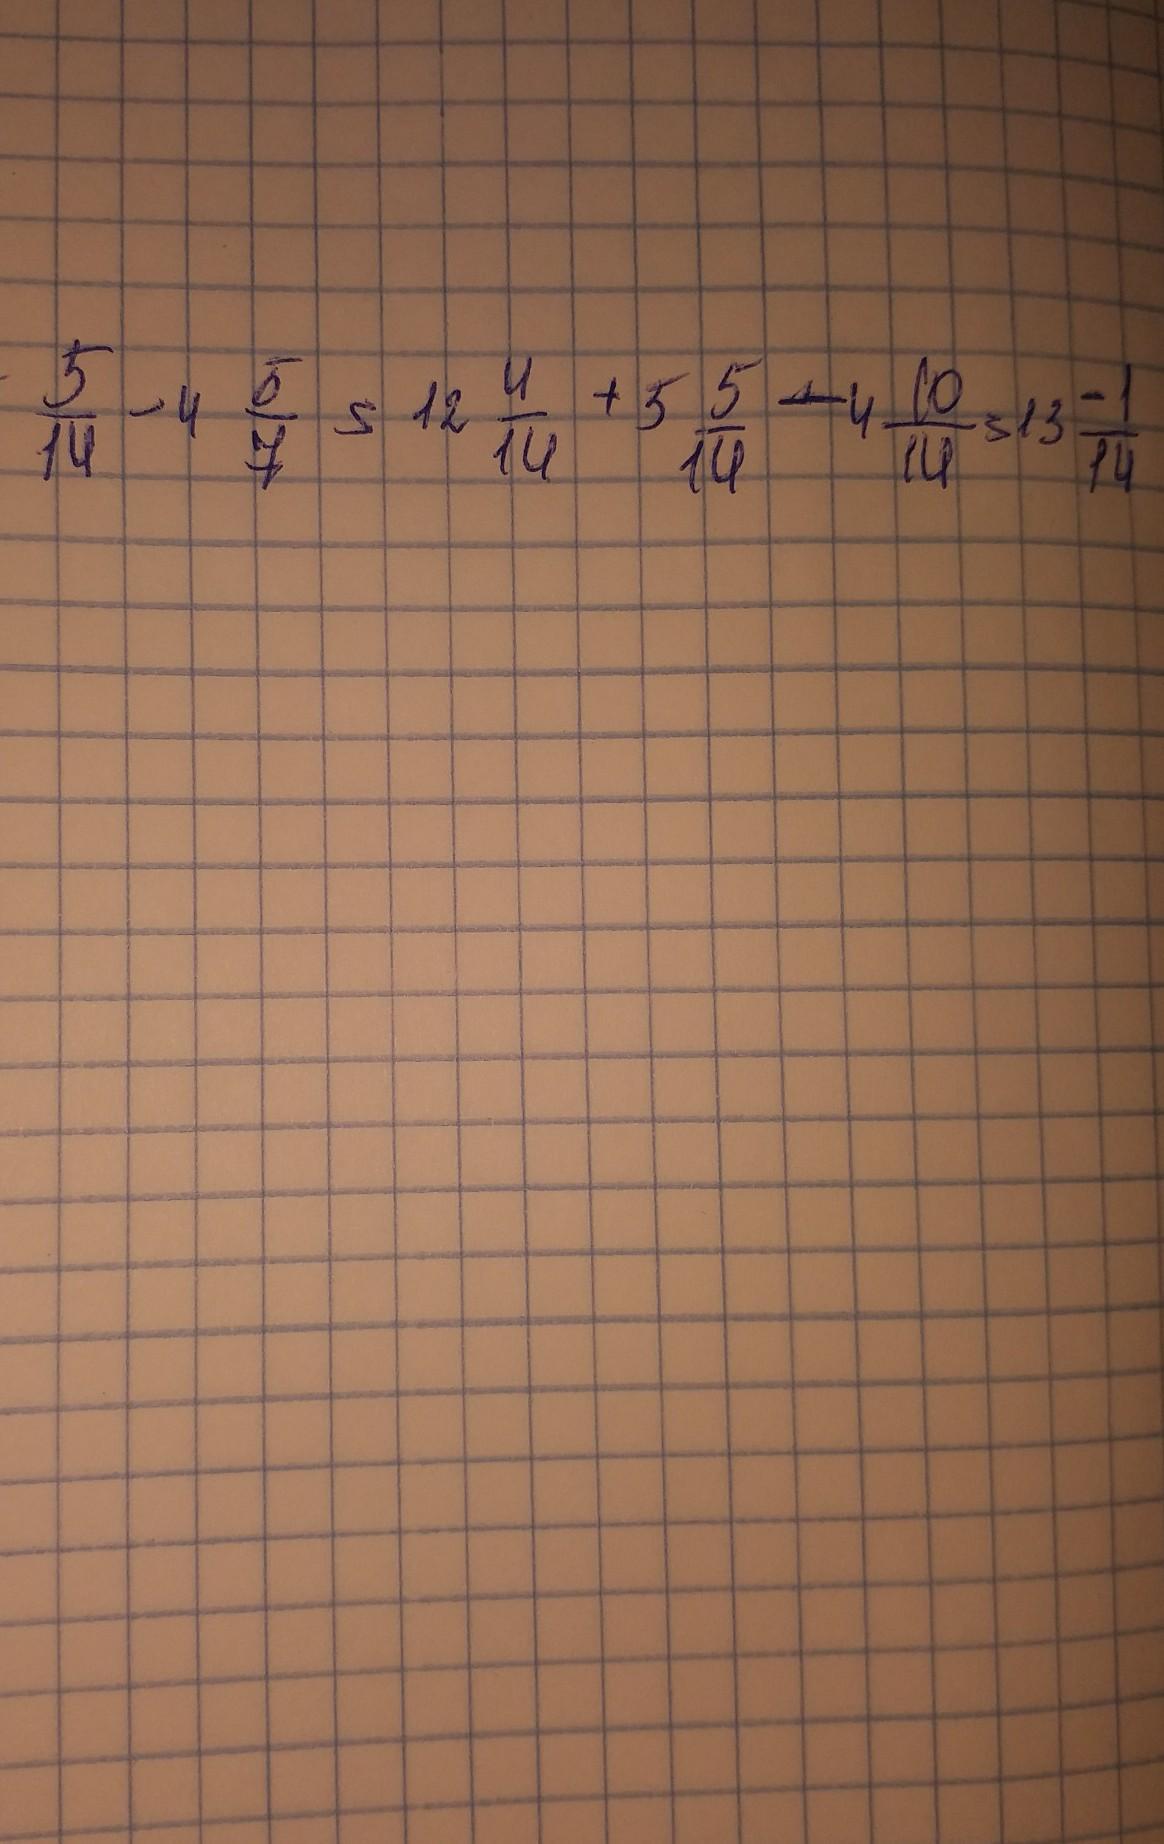 5/14 - 4 5/7 = 12 4/14 + 5 5/14 - 4 10/14 = 13 -1/14